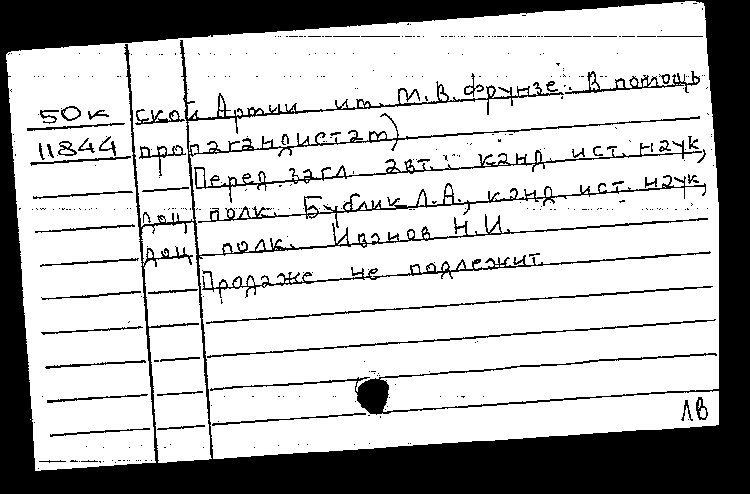 50к ской Армии им. М.В. Фрунзе. В помощь
11844 пропагандистам).
Перед загл. авт.: канд. ист. наук,
доц. полк. Бублик Л.А., канд. ист. наук,
доц. полк. Иванов Н.И.
Продаже не подлежит.
ЛВ